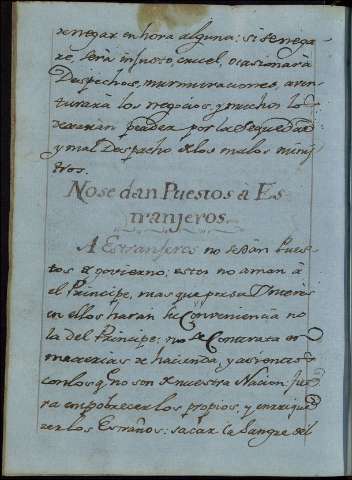 negar en hora alguna: si se nega-
re, será injusto, cruel, ocasionará
Despechos, murmuraciones, aven
turará los negocios, y muchos lo
dexarán perder por la sequedad
y mal Despacho de los malos minis
tros.
No se dan Puestos à Es
tranjeros.
A Estranjeros no se dán Pues-
tos de govierno, estos no aman à
el Principe, mas que para
en ellos harán su Conveniencia no
la del Principe: no se Contrata en
materias de hacienda, y asientos
con los q̃ no son de nuestra Nacion:
ra empobrecer los propios, y enrique
zer los Estraños: sacar la Sangre del